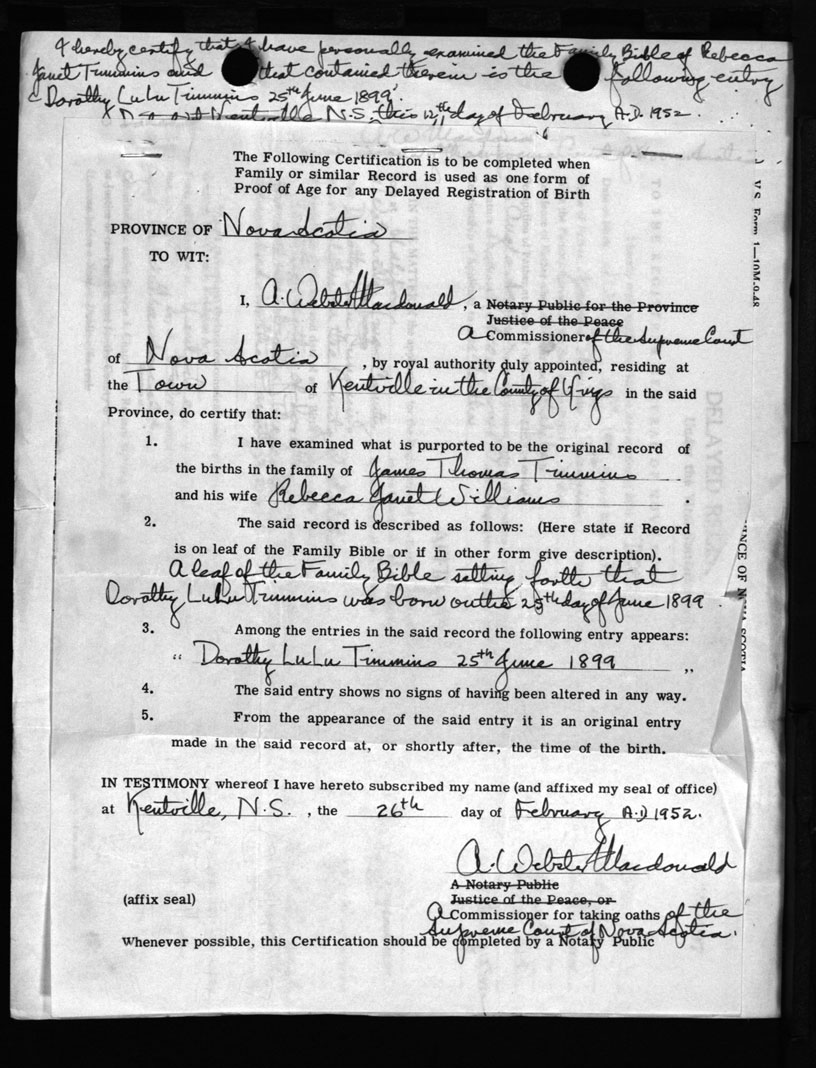 I hereby certify that I have personally examined the Family Bible of Rebecca
Janet Timmins and that contained therein is the following entry
"Dorothy LuLu Timmins 25th June 1899".
N.S. this 12th day of February A.D. 1952.
The Following Certification is to be completed when
Family or similar Record is used as one form of
Proof of Age for any Delayed Registration of Birth
V.S. Form 1—10M.9.48
PROVINCE OF Nova Scotia
TO WIT:
I, A. Webster Macdonald, a Notary Public for the Province
Justice of the Peace
A Commissioner of the Supreme Court
of Nova Scotia, by royal authority duly appointed, residing at
the Town of Kentville in the County of Kings in the said
Province, do certify that:
1. I have examined what is purported to be the original record of
the births in the family of James Thomas Timmins
and his wife Rebecca Janet Williams.
2. The said record is described as follows: (Here state if Record
is on leaf of the Family Bible or if in other form give description).
A leaf of the Family Bible setting forth that
Dorothy LuLu Timmins was born on the 25th day of June 1899.
3. Among the entries in the said record the following entry appears:
"Dorothy LuLu Timmins 25th June 1899"
4. The said entry shows no signs of having been altered in any way.
5. From the appearance of the said entry it is an original entry
made in the said record at, or shortly after, the time of the birth.
IN TESTIMONY whereof I have hereto subscribed my name (and affixed my seal of office)
at Kentville, N.S., the 26th day of February A.D 1952.
A. Webster Macdonald
A Notary Public
(affix seal) Justice of the Peace, or
A Commissioner for taking oaths of the
Supreme Court of Nova Scotia.
Whenever possible, this Certification should be completed by a Notary Public